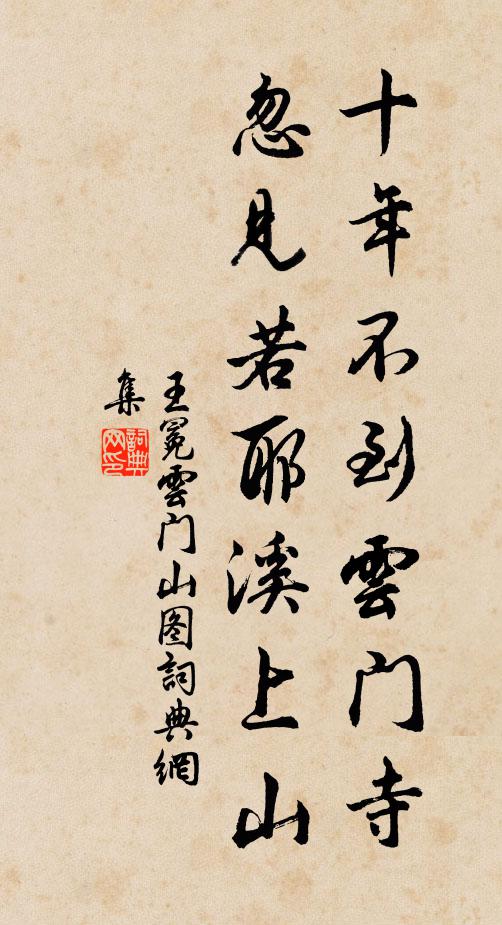 十年不到雲门寺
忽见若耶溪上山
王冕雲门山图詞典網
集
詞典网印